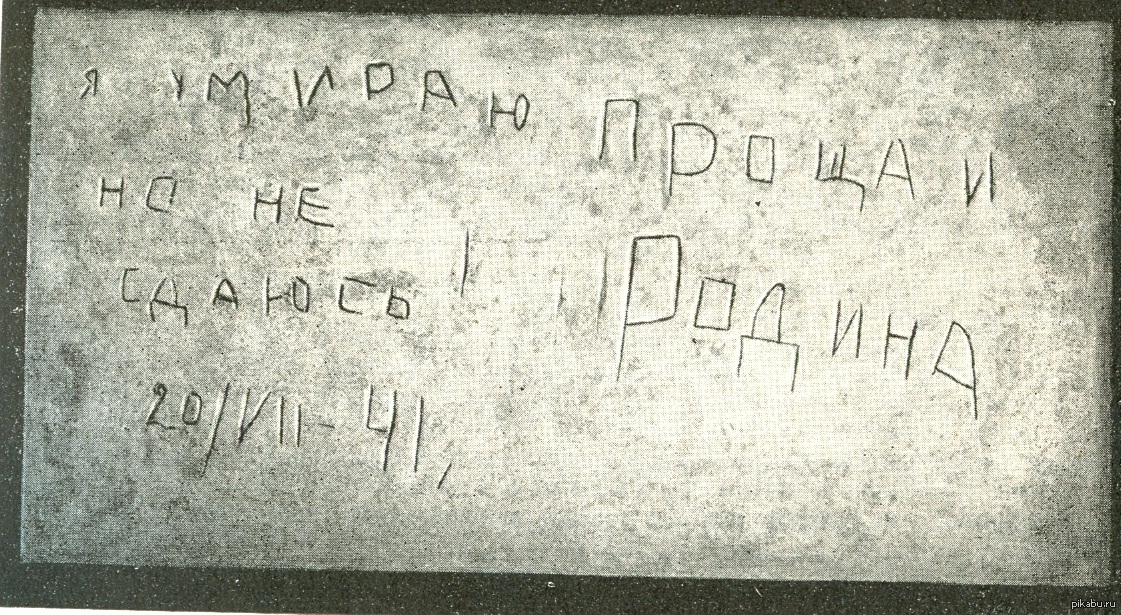 Я УМИРАЮ
НО НЕ
СДАЮСЬ!
20/VII-41,
ПРОЩАИ
РОДИНА
pikabu.ru